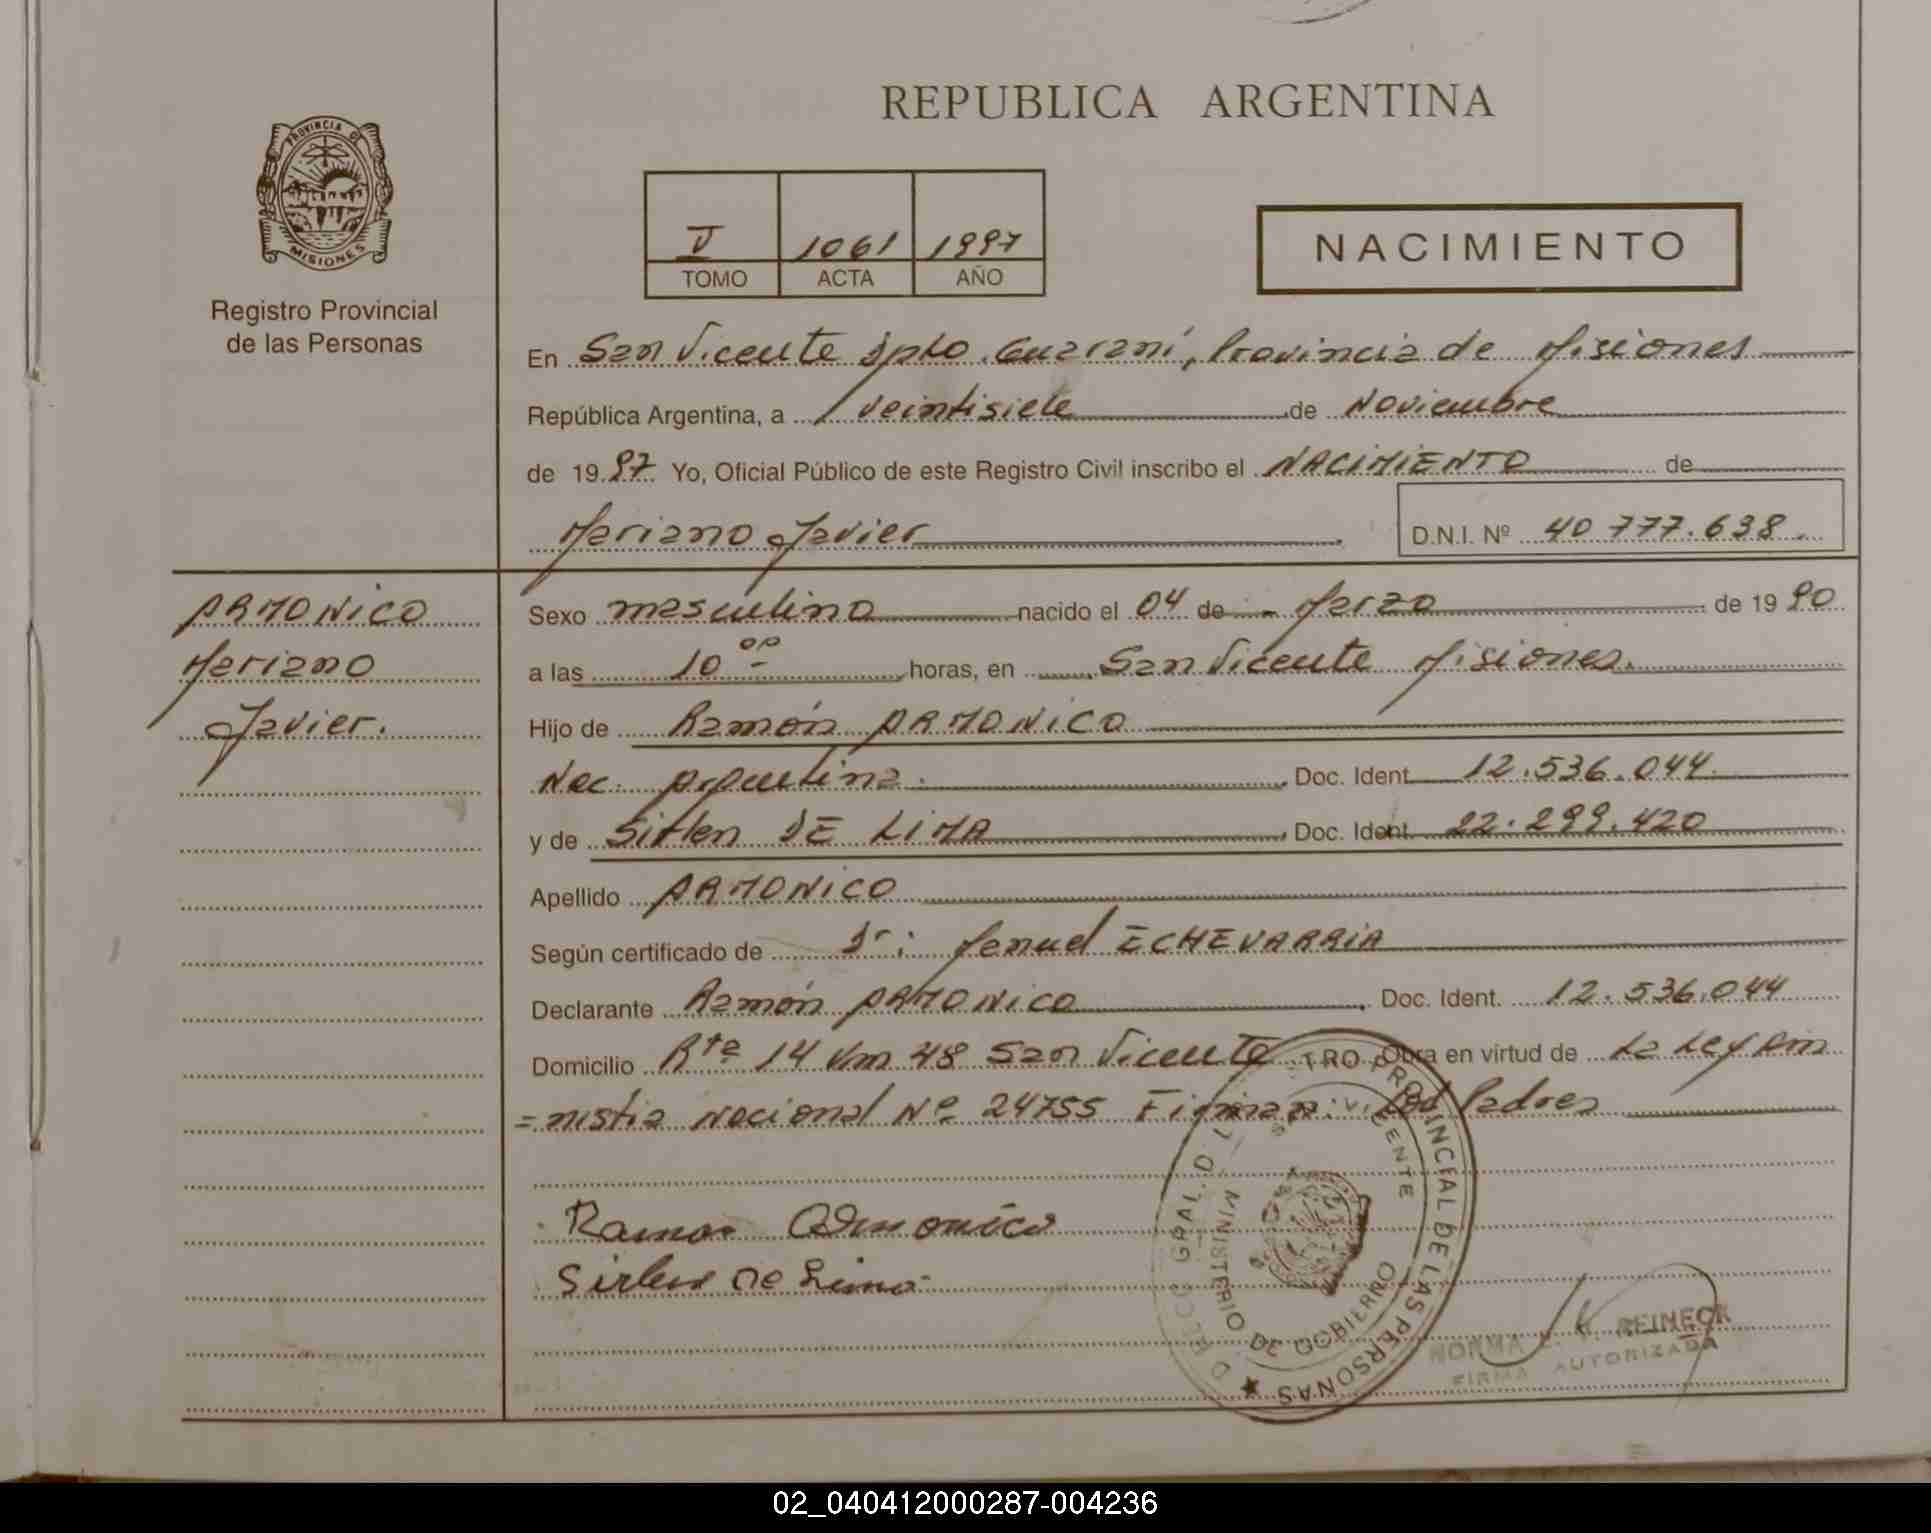 REPUBLICA ARGENTINA
PROVINCIA DE
MISIONES
Registro Provincial
de las Personas
V 1061 1997
TOMO ACTA AÑO
NACIMIENTO
En San Vicente Dpto. Guaraní, Provincia de Misiones
República Argentina, a veintisiete de Noviembre
de 19 97 Yo, Oficial Público de este Registro Civil inscribo el NACIMIENTO de
Mariano Javier D.N.I. Nº 40 777.638
ARMONICO
Mariano
Javier.
Sexo masculino nacido el 04 de Marzo de 19 90
a las 10 00 horas, en San Vicente Misiones.
Hijo de Ramón ARMONICO
Nac. Argentina. Doc. Ident. 12.536.044
y de Sirlen DE LIMA Doc. Ident. 22.299.420
Apellido ARMONICO
Según certificado de Dr: Manuel ECHEVARRIA
Declarante Ramón ARMONICO Doc. Ident. 12.536.044
Domicilio Rta 14 Km 48 San Vicente Obra en virtud de La Ley Am
=nistia Nacional Nº 24755 Firman: Los Padres
Ramon Armonico
Sirlen De Lima
TRO PROVINCIAL DE LAS PERSONAS
MINISTERIO DE GOBIERNO
NORMA REINECK
FIRMA AUTORIZADA
02_040412000287-004236